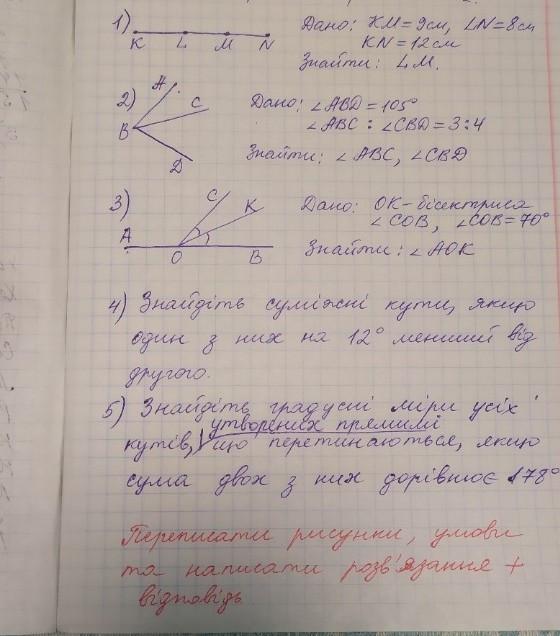 1) K L M N Дано: KM = 9см, LN = 8см
KN = 12см
Знайти: LM.
2) A B C D Дано: ∠ABD = 105°
∠ABC : ∠CBD = 3:4
Знайти: ∠ABC, ∠CBD
3) A O B C K Дано: OK - бісектриса
∠COB, ∠COB = 70°
Знайти: ∠AOK
4) Знайдіть суміжні кути, якщо
один з них на 12° менший від
другого.
5) Знайдіть градусні міри усіх
утворених прямими
кутів, що перетинаються, якщо
сума двох з них дорівнює 178°
Переписати рисунки, умови
та написати розв'язання +
відповідь